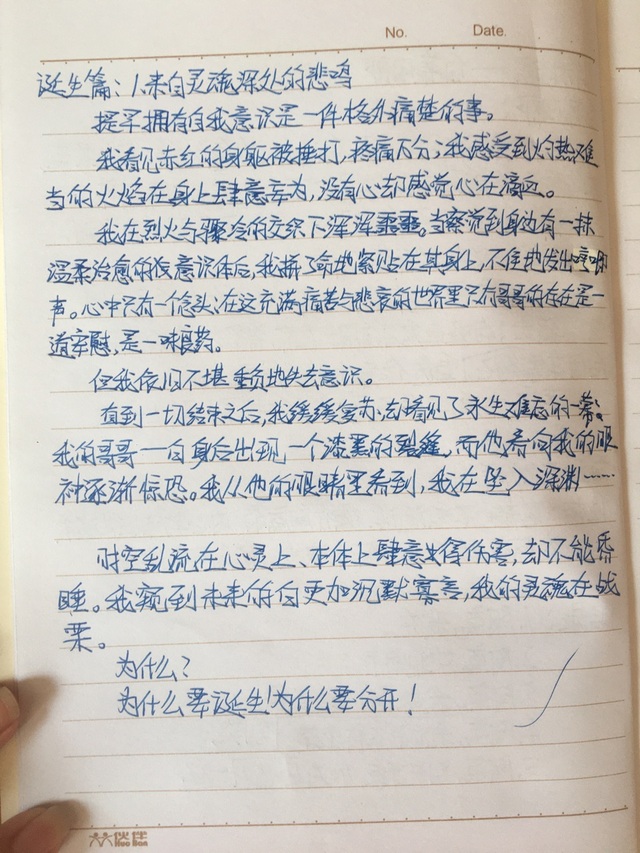 No. Date.
诞生篇:1.来自灵魂深处的悲鸣
提早拥有自我意识是一件格外痛楚的事。
我看见赤红的身躯被捶打,疼痛不分;我感受到灼热难
当的火焰在身上肆意妄为,没有心却感觉心在滴血。
我在烈火与骤冷的交织下浑浑噩噩。当察觉到身边有一抹
温柔治愈的没意识体后,我拼了命地紧贴在其身上,不住地发出哼唧
声。心中只有一个念头:在这充满痛苦与悲哀的世界里只有哥哥的存在是一
道安慰,是一味良药。
但我依旧不堪重负地失去意识。
直到一切结束之后,我缓缓复苏,却看见了永生难忘的一幕:
我的哥哥一白身后出现一个漆黑的裂缝,而他看向我的眼
神逐渐惊恐。我从他的眼睛里看到,我在坠入深渊……
时空乱流在心灵上、本体上肆意出得伤害,却不能昏
睡。我窥到未来的白更加沉默寡言,我的灵魂在战
栗。
为什么?
为什么要诞生!为什么要分开!
伙伴
Huo Ban